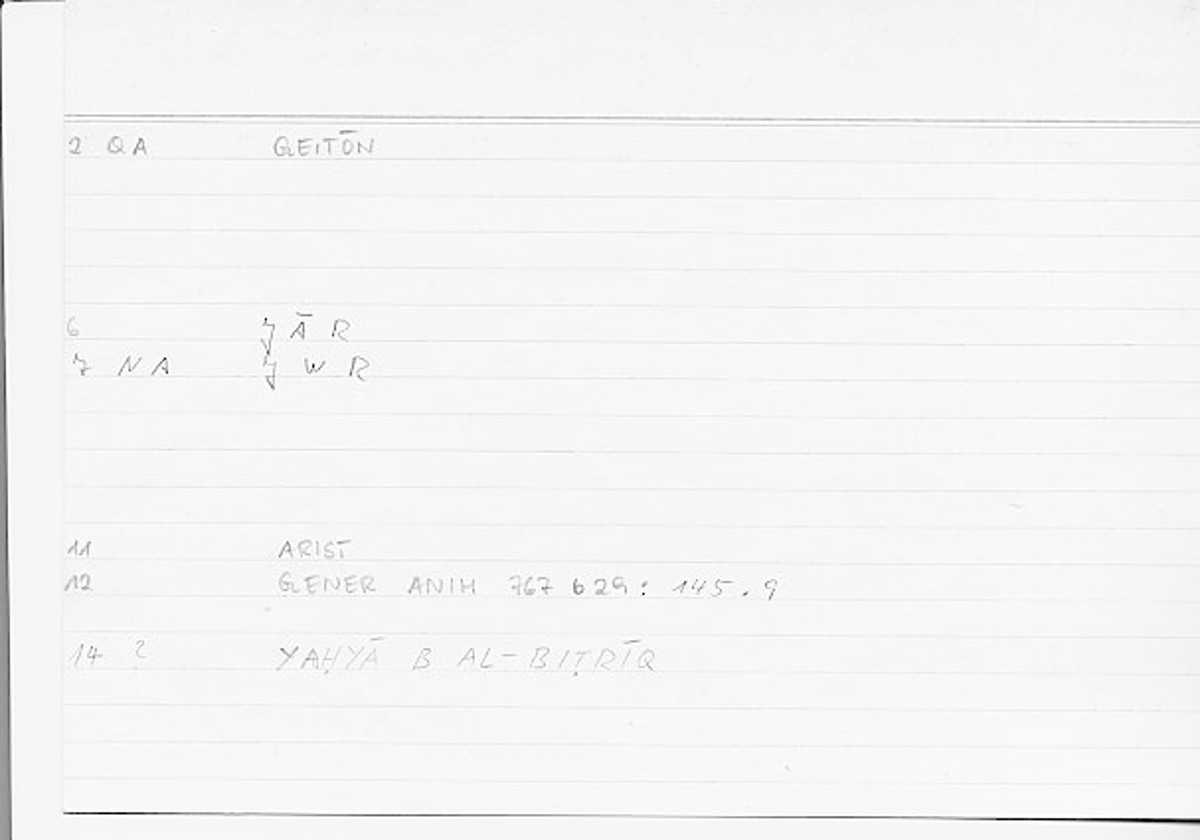 2 QA GEITŌN
6 J Ā R
7 NA J W R
11 ARIST
12 GENER ANIM 767 b 29: 145.9
14 ? YAḤYĀ B AL-BIṬRĪQ